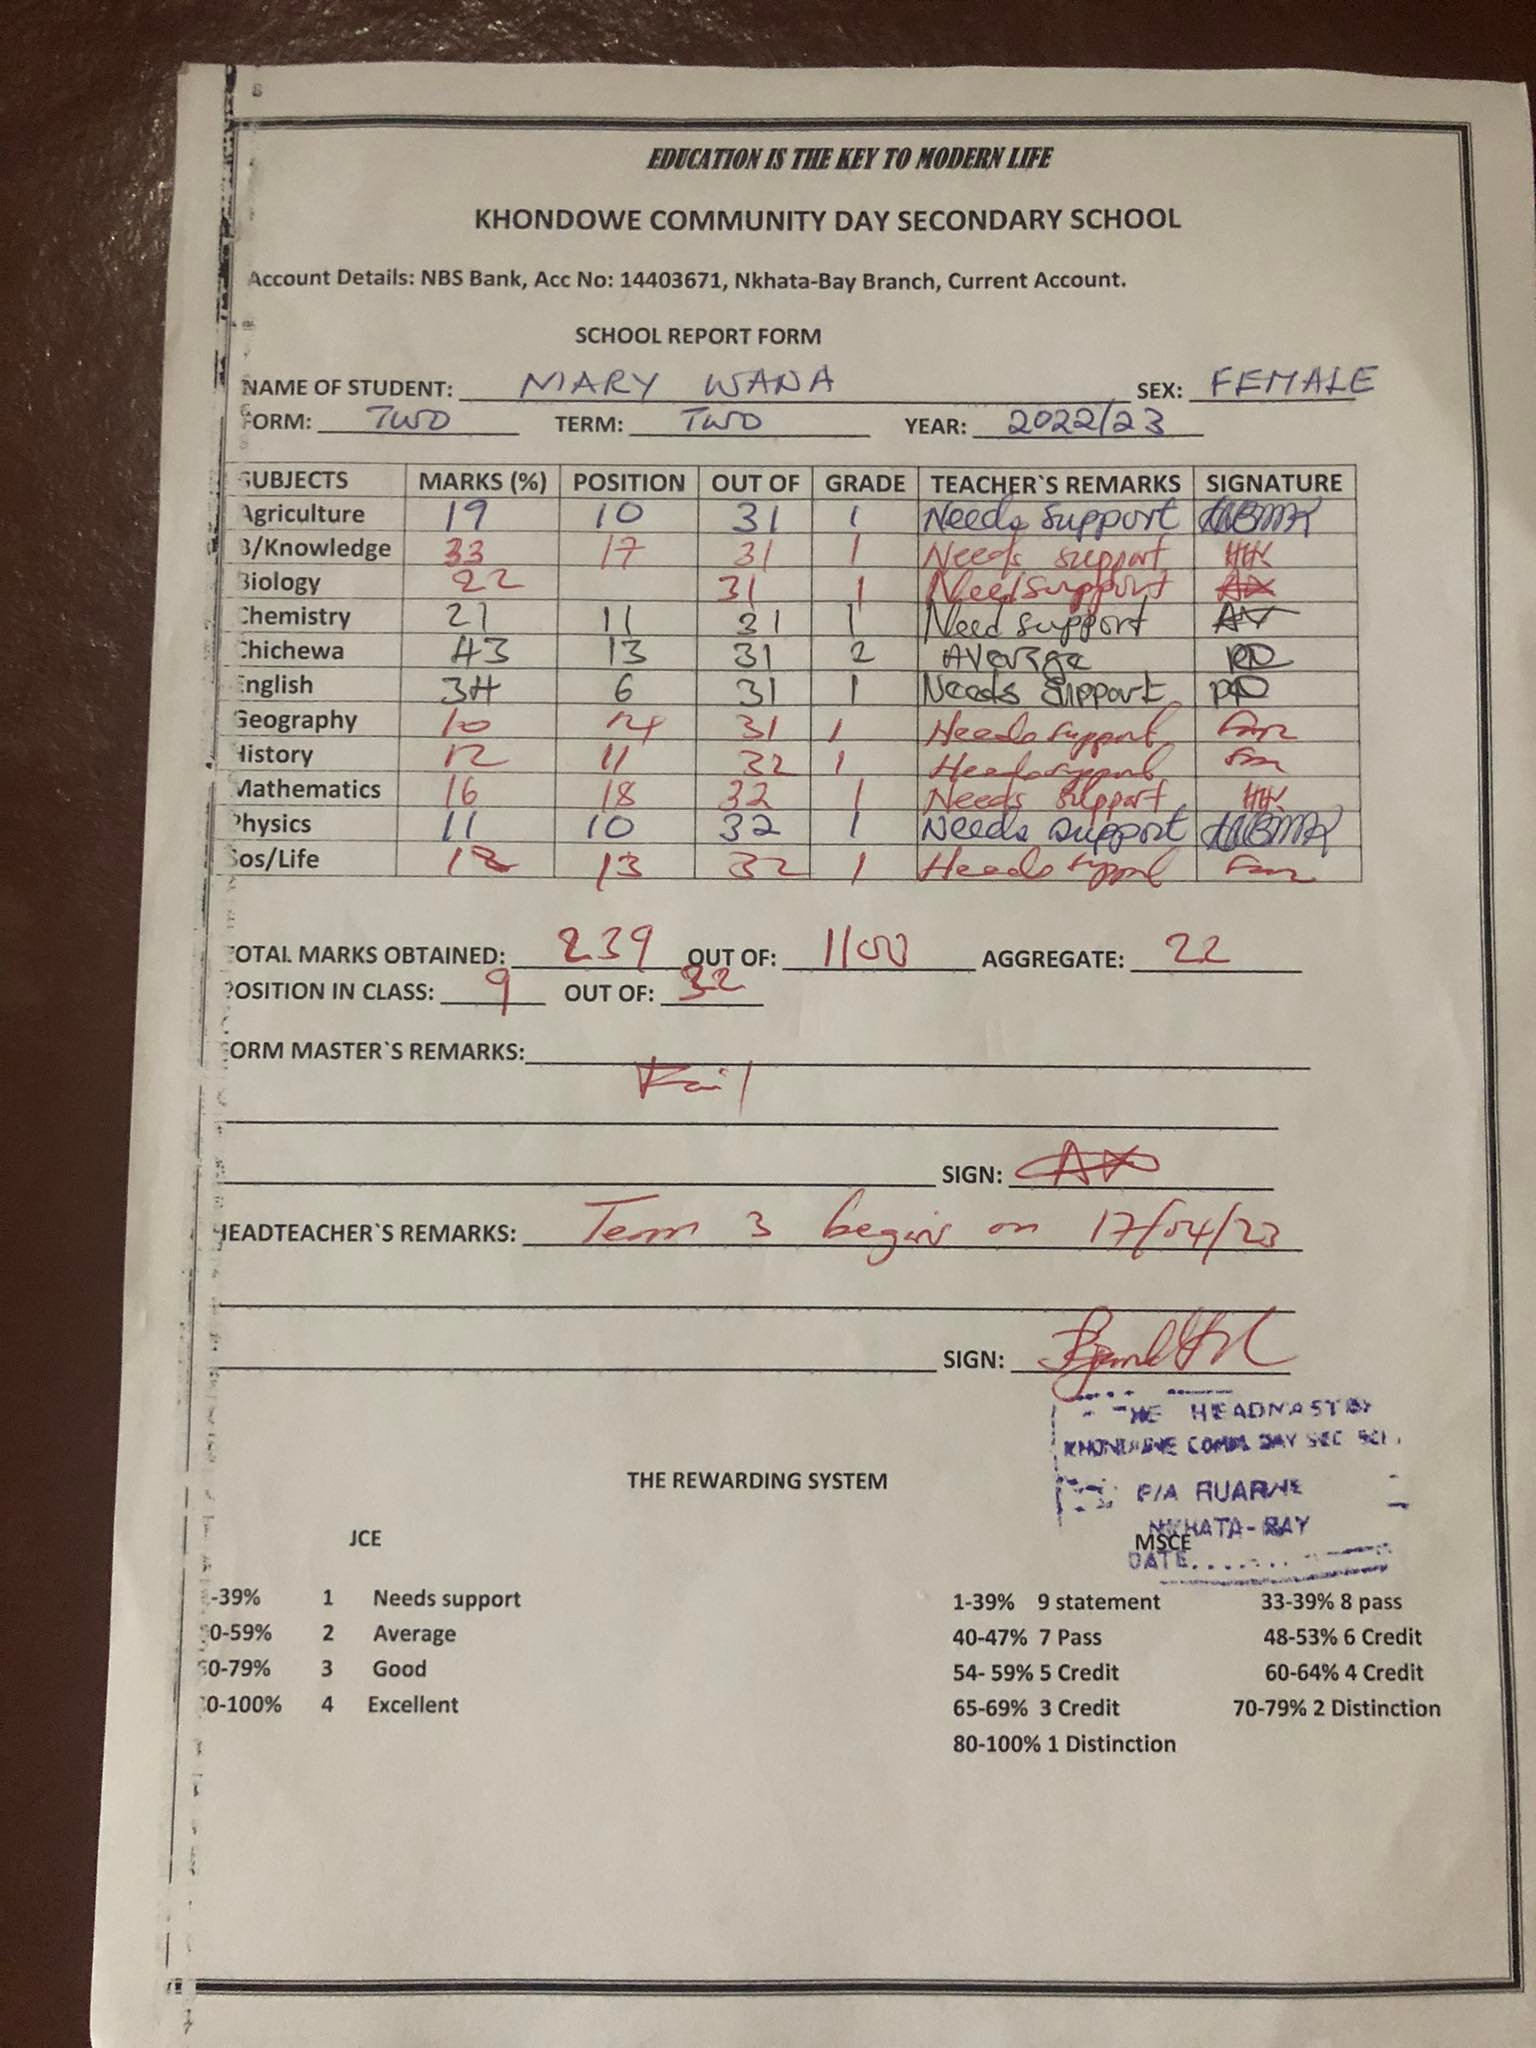 EDUCATION IS THE KEY TO MODERN LIFE
KHONDOWE COMMUNITY DAY SECONDARY SCHOOL
Account Details: NBS Bank, Acc No: 14403671, Nkhata-Bay Branch, Current Account.
SCHOOL REPORT FORM
NAME OF STUDENT: MARY WANA SEX: FEMALE
FORM: TWO TERM: TWO YEAR: 2022/23
SUBJECTS MARKS (%) POSITION OUT OF GRADE TEACHER`S REMARKS SIGNATURE
Agriculture 19 10 31 1 Needs Support
B/Knowledge 33 17 31 1 Needs support HK
Biology 22 31 1 Need support AX
Chemistry 21 11 31 1 Need support
Chichewa 43 13 31 2 Average
English 34 6 31 1 Needs Support
Geography 10 14 31 1 Needs support
History 12 11 32 1 Needs support
Mathematics 16 18 32 1 Needs support HK
Physics 11 10 32 1 Needs support
Sos/Life 18 13 32 1 Needs support
TOTAL MARKS OBTAINED: 239 OUT OF: 1100 AGGREGATE: 22
POSITION IN CLASS: 9 OUT OF: 32
FORM MASTER`S REMARKS:
Fail
SIGN: AX
HEADTEACHER`S REMARKS: Term 3 begins on 17/04/23
SIGN:
THE HEADMASTER
KHONDOWE COMM. DAY SEC SCH.
P/A RUARWE
NKHATA-BAY
DATE
THE REWARDING SYSTEM
JCE MSCE
-39% 1 Needs support 1-39% 9 statement 33-39% 8 pass
0-59% 2 Average 40-47% 7 Pass 48-53% 6 Credit
60-79% 3 Good 54- 59% 5 Credit 60-64% 4 Credit
0-100% 4 Excellent 65-69% 3 Credit 70-79% 2 Distinction
80-100% 1 Distinction